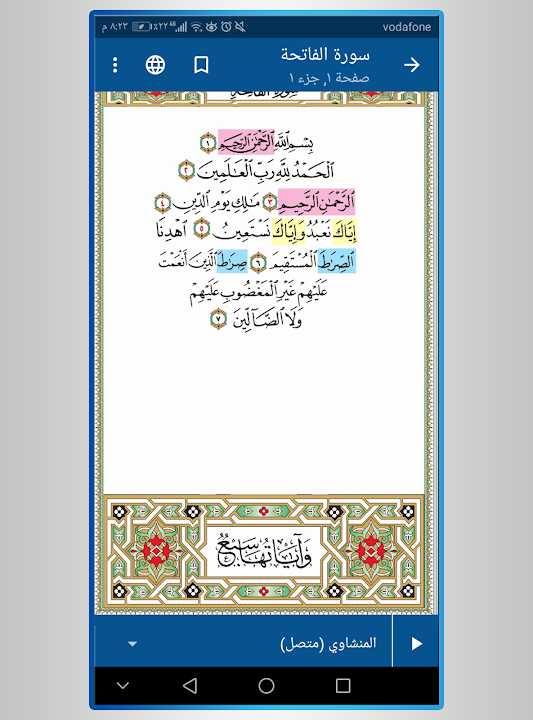 م ٨:٢٣ ٪٢٢ 4G vodafone
سورة الفاتحة
صفحة ١, جزء ١
سورة الفاتحة
بِسْمِ ٱللَّهِ ٱلرَّحْمَٰنِ ٱلرَّحِيمِ ١
ٱلْحَمْدُ لِلَّهِ رَبِّ ٱلْعَٰلَمِينَ ٢
ٱلرَّحْمَٰنِ ٱلرَّحِيمِ ٣ مَٰلِكِ يَوْمِ ٱلدِّينِ ٤
إِيَّاكَ نَعْبُدُ وَإِيَّاكَ نَسْتَعِينُ ٥ ٱهْدِنَا
ٱلصِّرَٰطَ ٱلْمُسْتَقِيمَ ٦ صِرَٰطَ ٱلَّذِينَ أَنْعَمْتَ
عَلَيْهِمْ غَيْرِ ٱلْمَغْضُوبِ عَلَيْهِمْ
وَلَا ٱلضَّآلِّينَ ٧
وَآيَاتُهَا سَبْعٌ
المنشاوي (متصل)